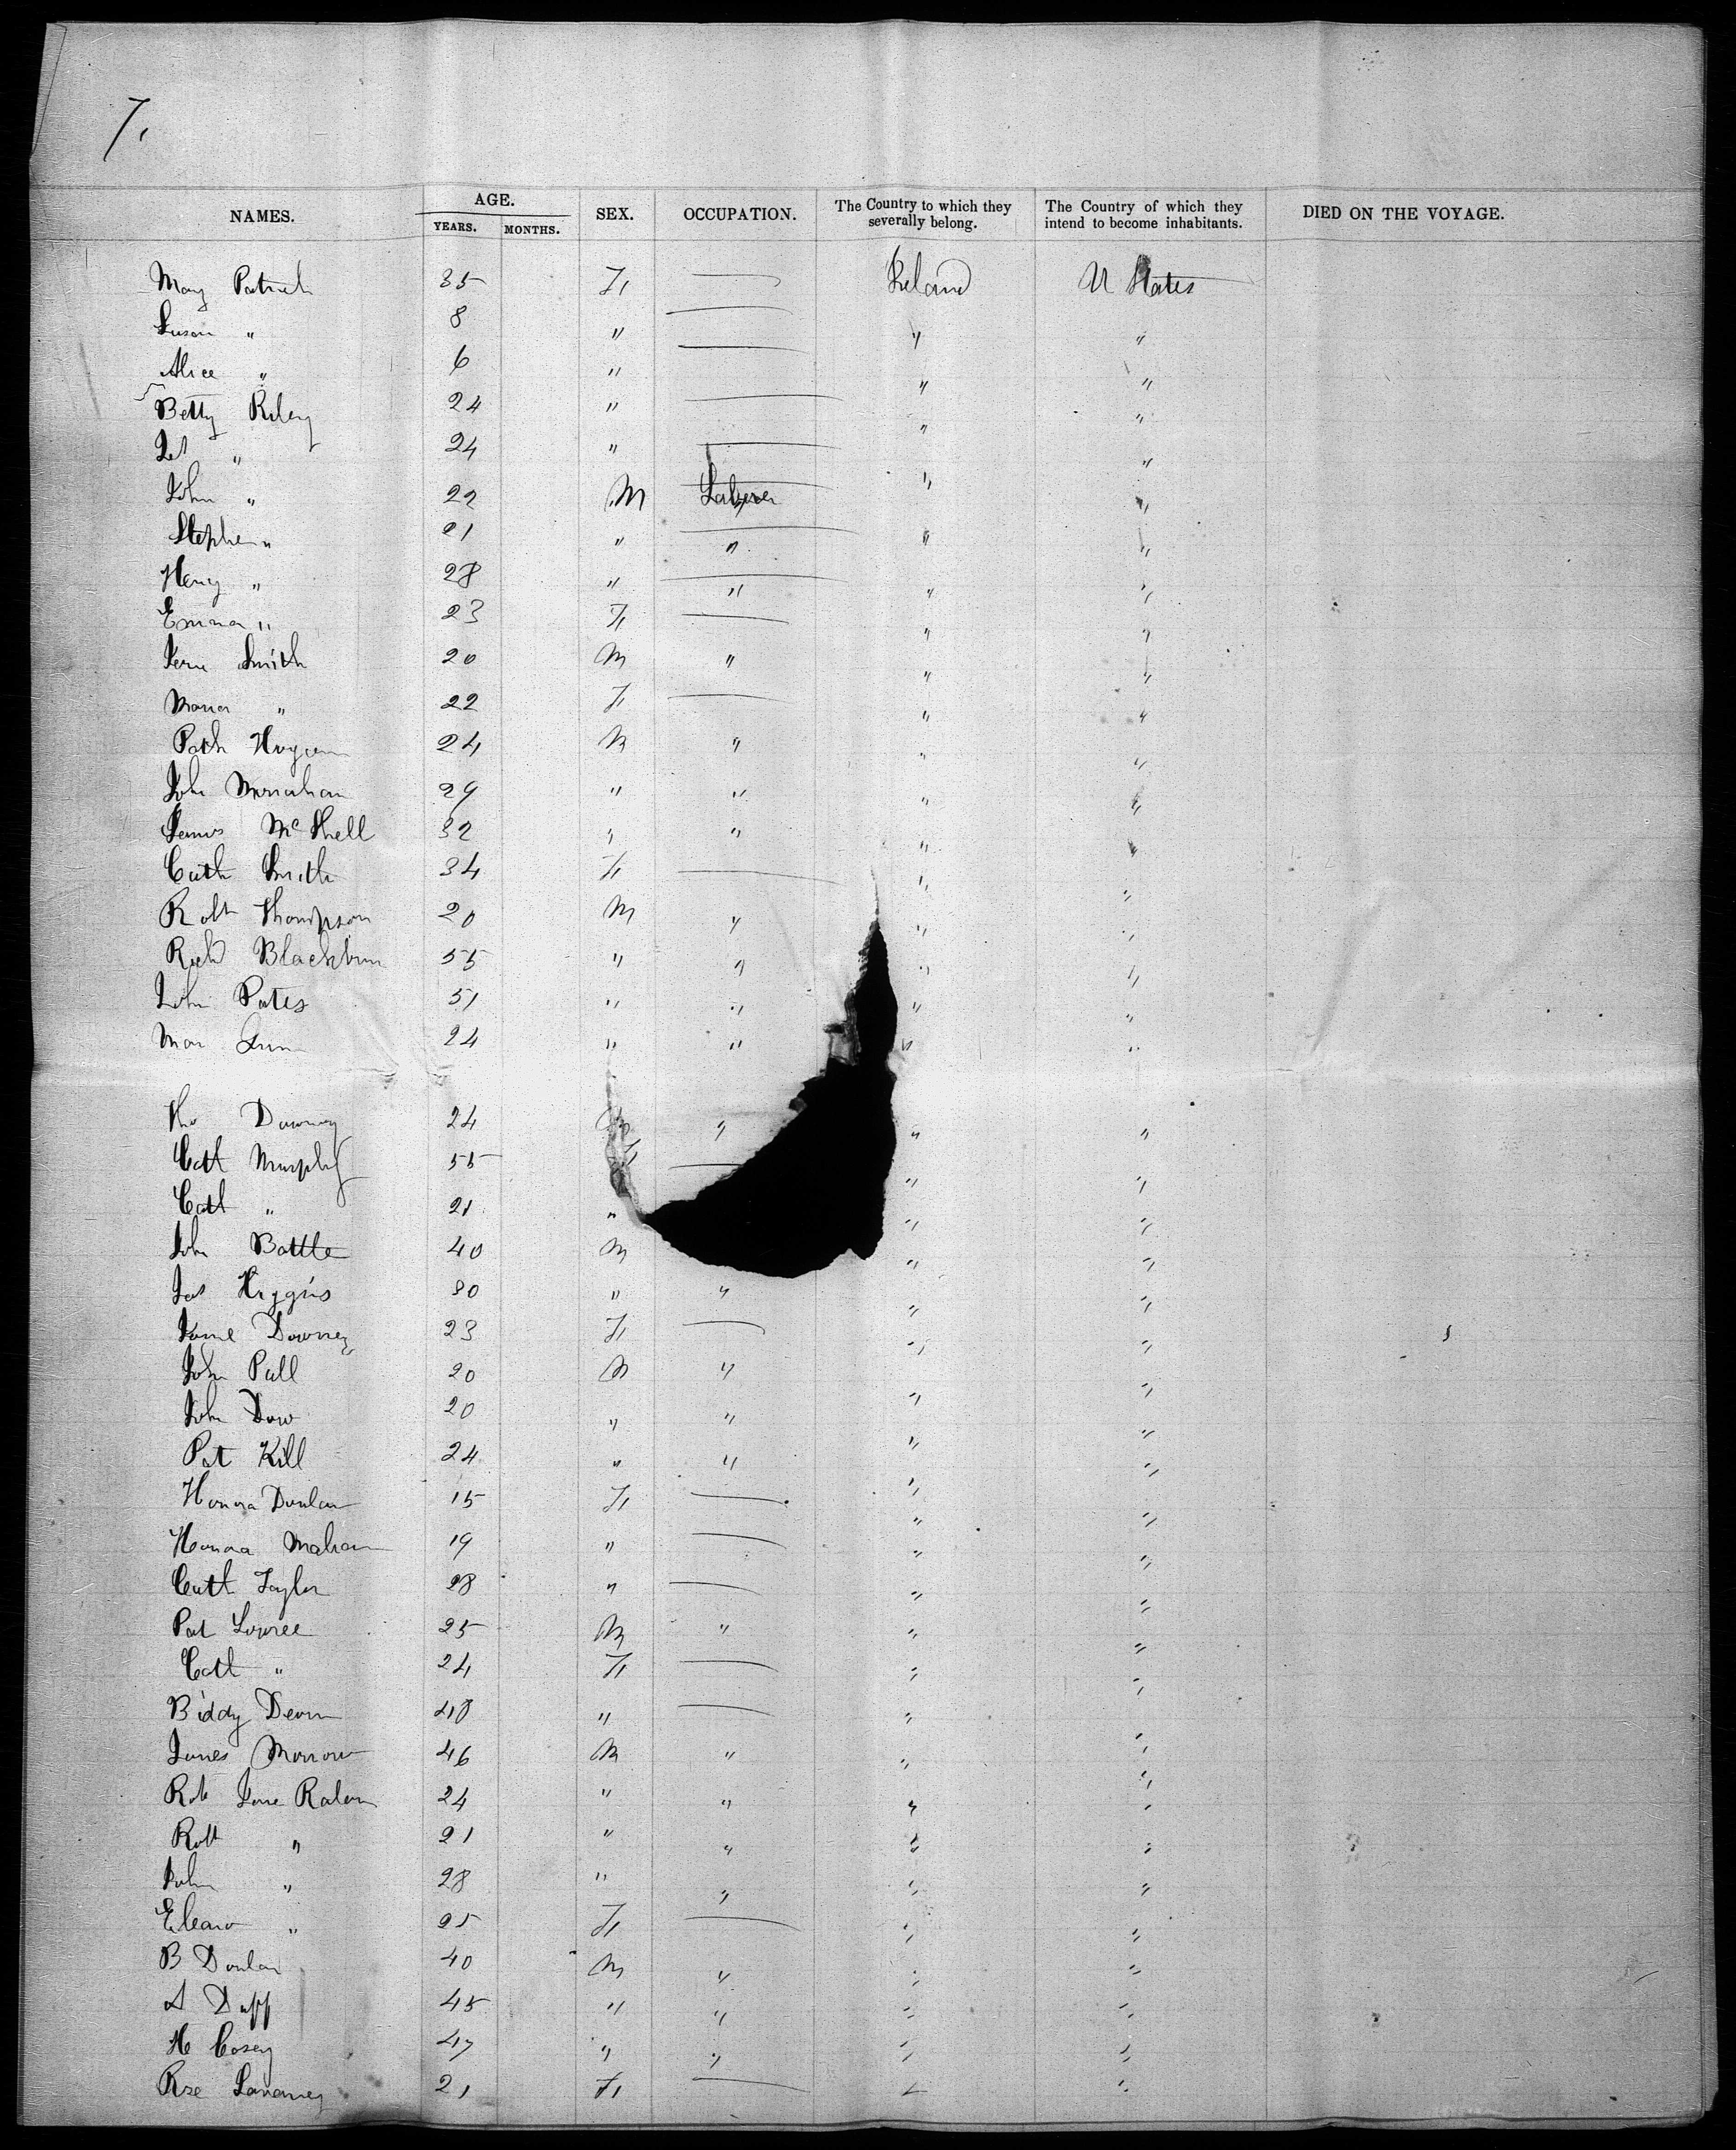 7.
NAMES. AGE. YEARS. MONTHS. SEX. OCCUPATION. The Country to which they severally belong. The Country of which they intend to become inhabitants. DIED ON THE VOYAGE.
Mary Patrick 35 F, — Ireland U States
Susan " 8 " — " "
Alice " 6 " — " "
Betty Riley 24 " — " "
" 24 " — " "
John " 22 M Laborer " "
Stephen " 21 " " " "
Henry " 28 " " " "
Emma " 23 F, — " "
Smith 20 M " " "
Maria " 22 F, — " "
Patk Hogan 24 M " " "
John Monahan 29 " " " "
James Mc Shell 32 " " " "
Cath Smith 34 F, — " "
Robt Thompson 20 M " " "
Richd Blackburn 55 " " " "
John Pates 51 " " " "
24 " " " "
Tho Downey 24 " " "
Cath Murphy 55 F, — " "
Cath " 21 " " "
John Battle 40 M " "
Jas Higgins 30 " " " "
Jane Downey 23 F, — " "
John Pall 20 M " " "
John Dow 20 " " " "
Pat Kill 24 " " " "
Honora Donlan 15 F, — " "
Honora Mahan 19 " — " "
Cath Taylor 28 " — " "
Pat Lowree 25 M " " "
Cath " 24 F, — " "
Biddy 48 " — " "
James Morrow 46 M " " "
Rob 24 " " " "
Robt " 21 " " " "
John " 28 " " " "
" 25 F, — " "
B Donlan 40 M " " "
Duff 45 " " " "
H Casey 47 " " " "
Rose 21 F, — " "